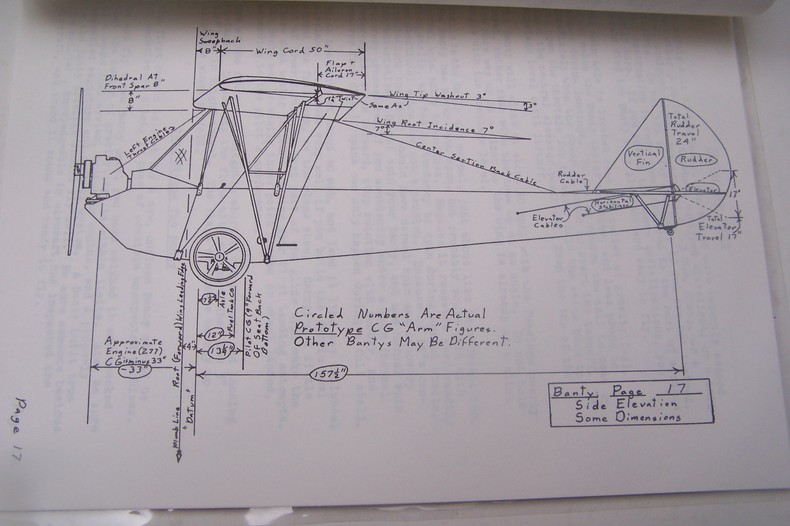 Wing
Sweepback
8"
Wing Cord 50"
Flap +
Aileron
Cord 17"
Dihedral At
Front Spar 8"
8"
Wing Tip Washout 3°
Same As
3°
Wing Root Incidence 7°
7°
Left Engine
Thrust Cables
Center Section Back Cable
Rudder
Cable
Elevator
Cables
Horizontal
Stabilizer
Vertical
Fin
Total
Rudder
Travel
24"
Rudder
Elevator
17"
Total
Elevator
Travel 17"
Axle
Fuel Tank CG
12"
Pilot CG (9" Forward
Of Seat Back
Bottom)
Circled Numbers Are Actual
Prototype CG "Arm" Figures.
Other Bantys May Be Different.
Approximate
Engine (277)
CG is minus 33"
-33"
4"
Plumb Line
Root (Forward) Wing Leading Edge
"Datum"
157½"
Banty Page 17
Side Elevation
Some Dimensions
Page 17